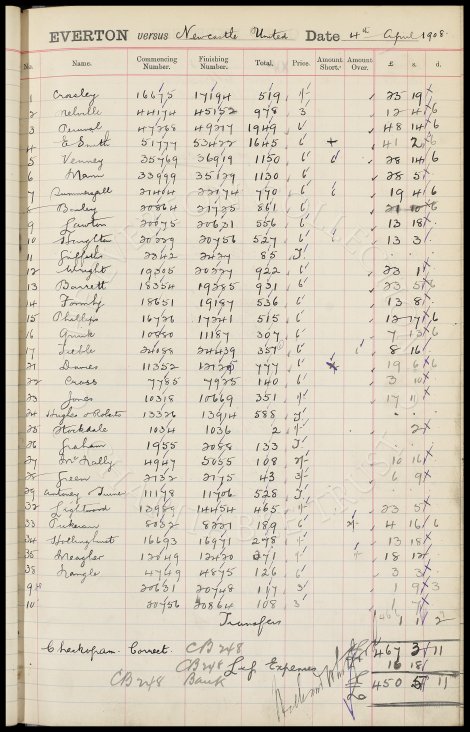 EVERTON versus Newcastle United Date 4th April 1908.
No. Name. Commencing Number. Finishing Number. Total. Price. Amount Short. Amount Over. £ s. d.
1 Crosley 16675 17194 519 1/- 25 19
2 Melville 44174 45152 978 3 12 4 6
3 49217 1949 6 48 14 6
4 E Smith 51777 53422 1645 6 + 41 2 6
5 Venney 35769 36919 1150 6 28 14 6
6 Mann 33999 35129 1130 6 28 5
7 Summergill 21404 22174 770 6 19 4 6
8 Bailey 20864 21725 861 6 21 10 6
9 Lawton 20075 20631 556 6 13 18
10 Houghton 20229 20756 527 6 13 3
11 Griffiths 2342 2427 85 J
12 Wright 19305 20227 922 6 23 1
13 Barrett 18354 19285 931 6 23 5 6
14 Formby 18651 19187 536 6 13 8
15 Phillips 16726 17241 515 6 12 17 6
16 10880 11187 307 6 7 13 6
17 24088 24439 351 6 8 16
21 Davies 11352 777 6 19 6 6
22 Cross 7785 7925 140 6 3 10
23 Jones 10318 10669 351 1/- 17 11
24 Hughes & Roberts 13326 13914 588 J
25 Stockdale 1034 1036 2 1/- 2
26 Graham 1955 2088 133 J
27 McNally 4947 5055 108 2/- 10 16
28 Green 2732 2775 43 3/- 6 9
29 11178 11706 528 J
32 Lightwood 13989 14454 465 1/- 23 5
33 8032 8221 189 6 4 16 6
34 Hollinghurst 16693 16971 278 1/- 13 18
35 Meagher 12149 12420 271 1/- 18 12
38 Nangle 4749 4875 126 6 3 3
9 20631 20748 117 3 1 9 3
10 20756 20864 108 3 1 7
Transfers 1 1 2
Checkogram. Correct. CB 248 467 3 11
CB 248 Less Expenses 16 18
CB 248 Bank £ 450 5 11